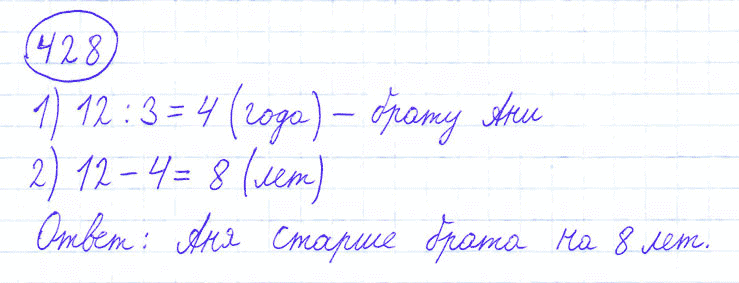 428
1) 12 : 3 = 4 (года) – брату Ани
2) 12 – 4 = 8 (лет)
Ответ: Аня старше брата на 8 лет.